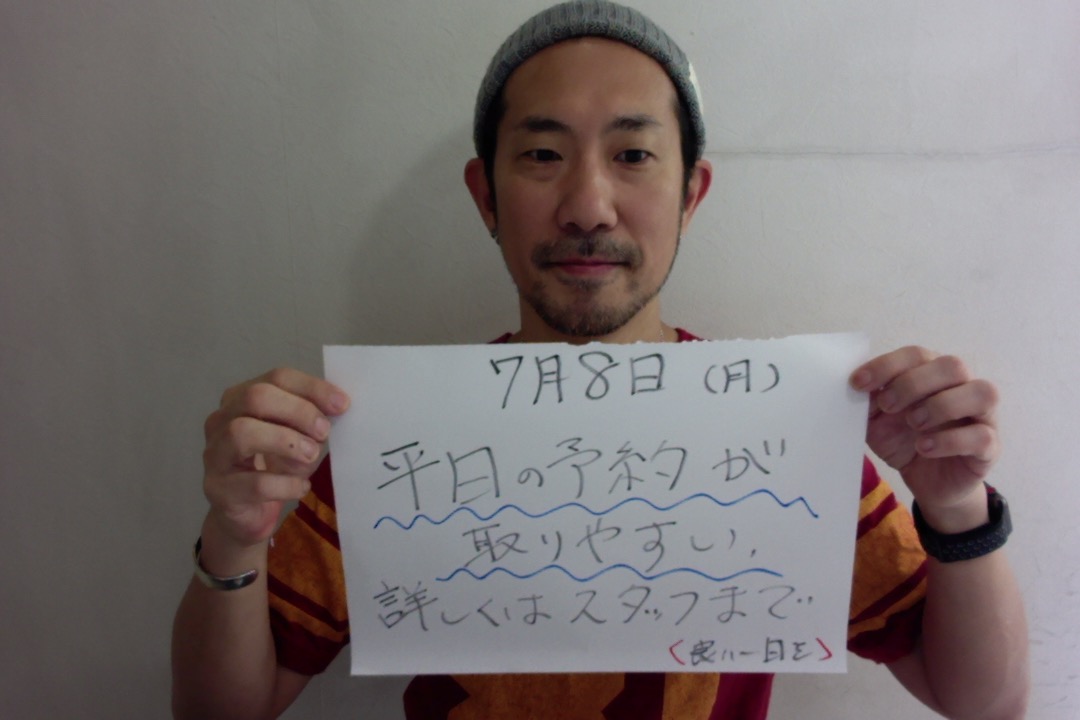 7月8日(月)
平日の予約が
取りやすい.
詳しくはスタッフまで
<良い一日を>